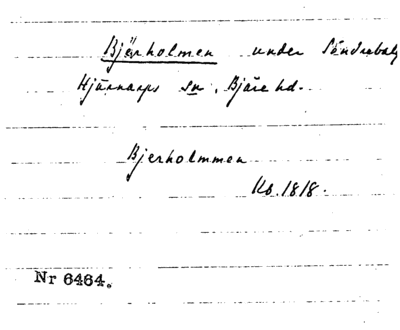 Bjärholmen under Söndrebalj
Hjärnarps sn. Bjäre hd.
Bjerholmmen
Kb. 1818.
Nr 6464.